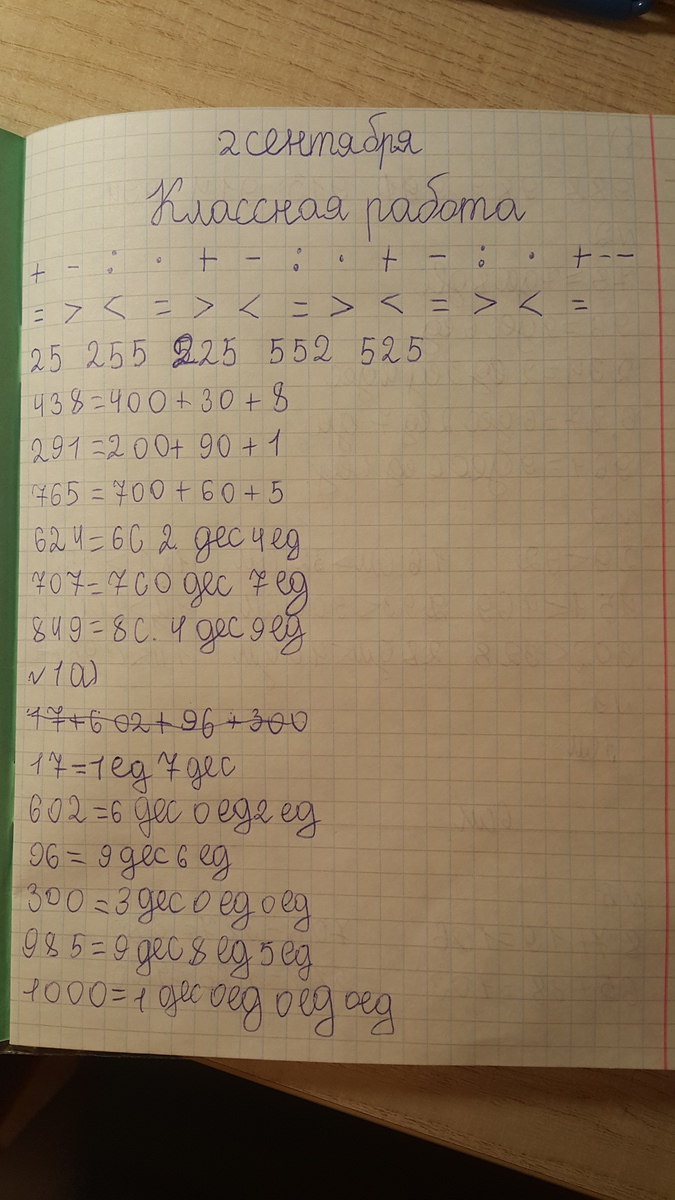 2 сентября
Классная работа
+ - : · + - : · + - : · + - -
= > < = > < = > < = > < =
25 255 225 552 525
438=400+30+8
291=200+90+1
765=700+60+5
624=6С 2. дес 4ед
707=7С0 дес 7ед
849=8С. 4 дес 9ед
№1а)
17+602+96+300
17=1ед 7дес
602=6 дес 0 ед2 ед
96=9дес6ед
300=3дес0ед0ед
985=9дес8ед5ед
1000=1 дес0ед 0ед 0ед